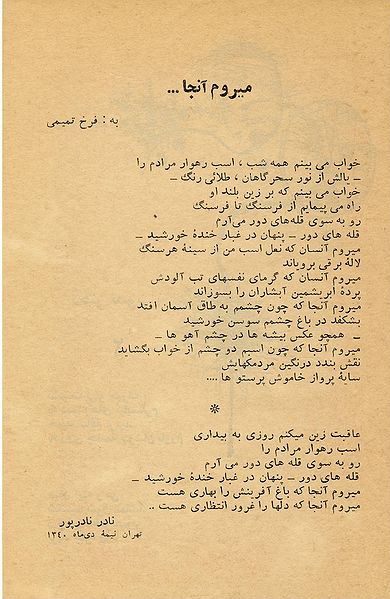 میروم آنجا ...
به : فرخ تمیمی
خواب می بینم همه شب ، اسب رهوار مرادم را
ـ بالش از نور سحرگاهان ، طلائی رنگ ـ
خواب می بینم که بر زین بلند او
راه می پیمایم از فرسنگ تا فرسنگ
رو به سوی قله‌های دور می‌آرم
قله های دور ـ پنهان در غبار خندهٔ خورشید ـ
میروم آنسان که نعل اسب من از سینهٔ هرسنگ
لالهٔ برقی برویاند
میروم آنسان که گرمای نفسهای تب آلودش
پردهٔ ابریشمین آبشاران را بسوزاند
میروم آنجا که چون چشمم به طاق آسمان افتد
بشکفد در باغ چشمم سوسن خورشید
ـ همچو عکس بیشه ها در چشم آهو ها ـ
میروم آنجا که چون اسبم دو چشم از خواب بگشاید
نقش بندد درنگین مردمکهایش
سایهٔ پرواز خاموش پرستو ها ....
*
عاقبت زین میکنم روزی به بیداری
اسب رهوار مرادم را
رو به سوی قله های دور می آرم
قله های دور ـ پنهان در غبار خندهٔ خورشید ـ
میروم آنجا که باغ آفرینش را بهاری هست
میروم آنجا که دلها را غرور انتظاری هست ..
نادر نادرپور
تهران نیمهٔ دی‌ماه ۱۳۴۰